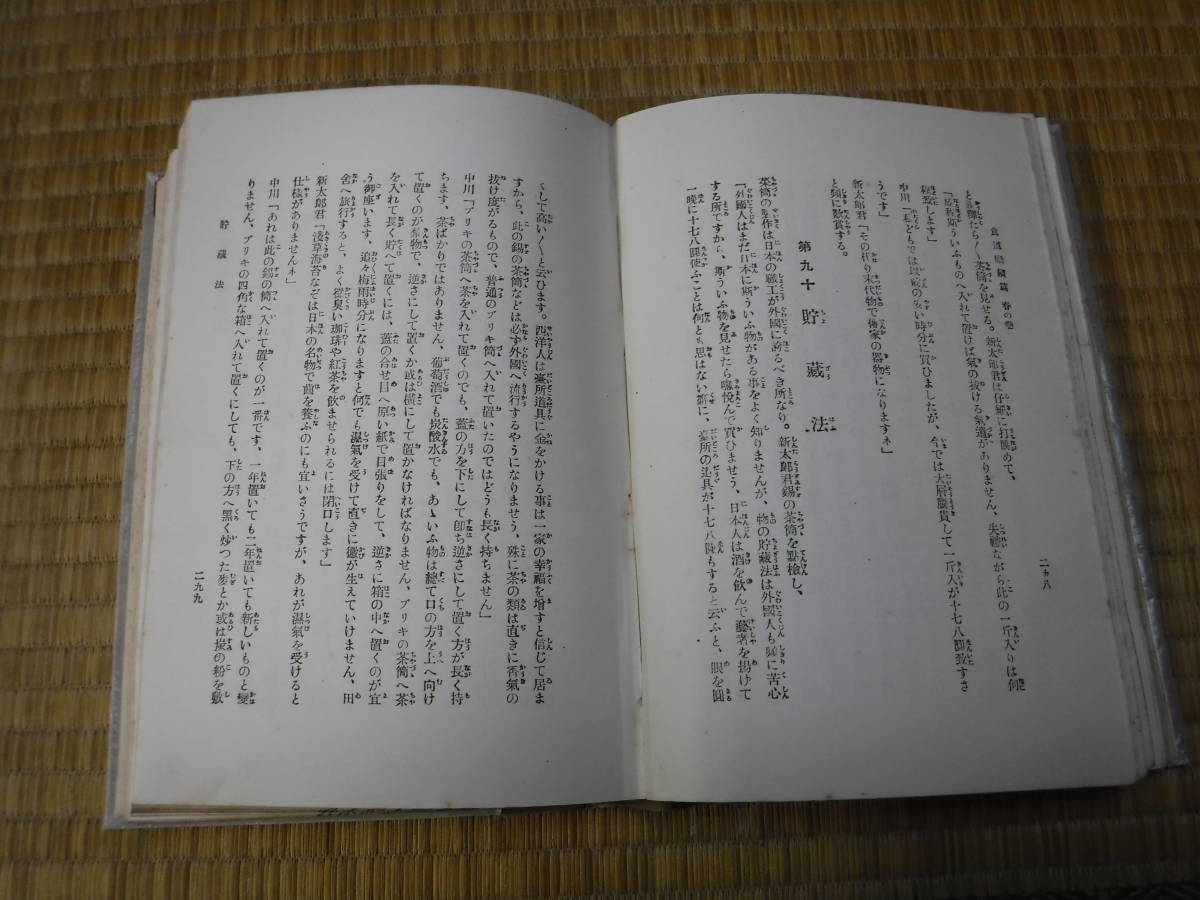 食道樂續篇 春の巻
二九八
と講釋たら〳〵茶筒を見せる。新太郎君は仔細に打眺めて、
「成程斯ういふものへ入れて置けば氣の抜ける氣遣がありません、失禮ながら此の一斤入りは何
程致します」
中川「私どもでは以前の安い時分に買ひましたが、今では大層騰貴して一斤入が十七八圓致すさ
うです」
新太郎君「その代り末代物で傳家の器物になりますネ」
と頻に歎賞する。
第九十 貯藏法
茶筒の製作は日本の職工が外國に誇るべき所なり。新太郎君錫の茶筒を點檢し、
「外國人はまだ日本に斯ういふ物がある事をよく知りませんが、物の貯藏法は外國人も頻に苦心
する所ですから、斯ういふ物を見せたら嘸悦んで買ひませう、日本人は酒を飲んで藝者を揚げて
一晩に十七八圓使ふことは何とも思はない癖に、臺所の道具が十七八圓もすると云ふと、眼を圓
くして高い〳〵と云ひます。西洋人は臺所道具に金をかける事は一家の幸福を増すと信じて居ま
すから、此の錫の茶筒などは必ず外國へ流行するやうになりませう、殊に茶の類は直きに香氣の
抜け度がるもので、普通のブリキ筒へ入れて置いたのではどうも長く持ちません」
中川「ブリキの茶筒へ茶を入れて置くのでも、蓋の方を下にして卽ち逆さにして置く方が長く持
ちます、茶ばかりではありません、葡萄酒でも炭酸水でも、あゝいふ物は總て口の方を上へ向け
て置くのが禁物で、逆さにして置くか或は横にして置かなければなりません、ブリキの茶筒へ茶
を入れて長く貯へて置くには、蓋の合せ目へ厚い紙で目張りをして、逆さに箱の中へ置くのが宜
う御座います、追々梅雨時分になりますと何でも濕氣を受けて直きに黴が生えていけません、田
舍へ旅行すると、よく黴臭い珈琲や紅茶を飲ませられるには閉口します」
新太郎君「淺草海苔なぞは日本の名物で齒を養ふのにも宜いさうですが、あれが濕氣を受けると
仕様がありませんネ」
中川「あれは此の錫の筒へ入れて置くのが一番です、一年置いても二年置いても新しいものと變
りません、ブリキの四角な箱へ入れて置くにしても、下の方へ黒く炒つた麥とか或は炭の粉を敷
貯藏法
二九九